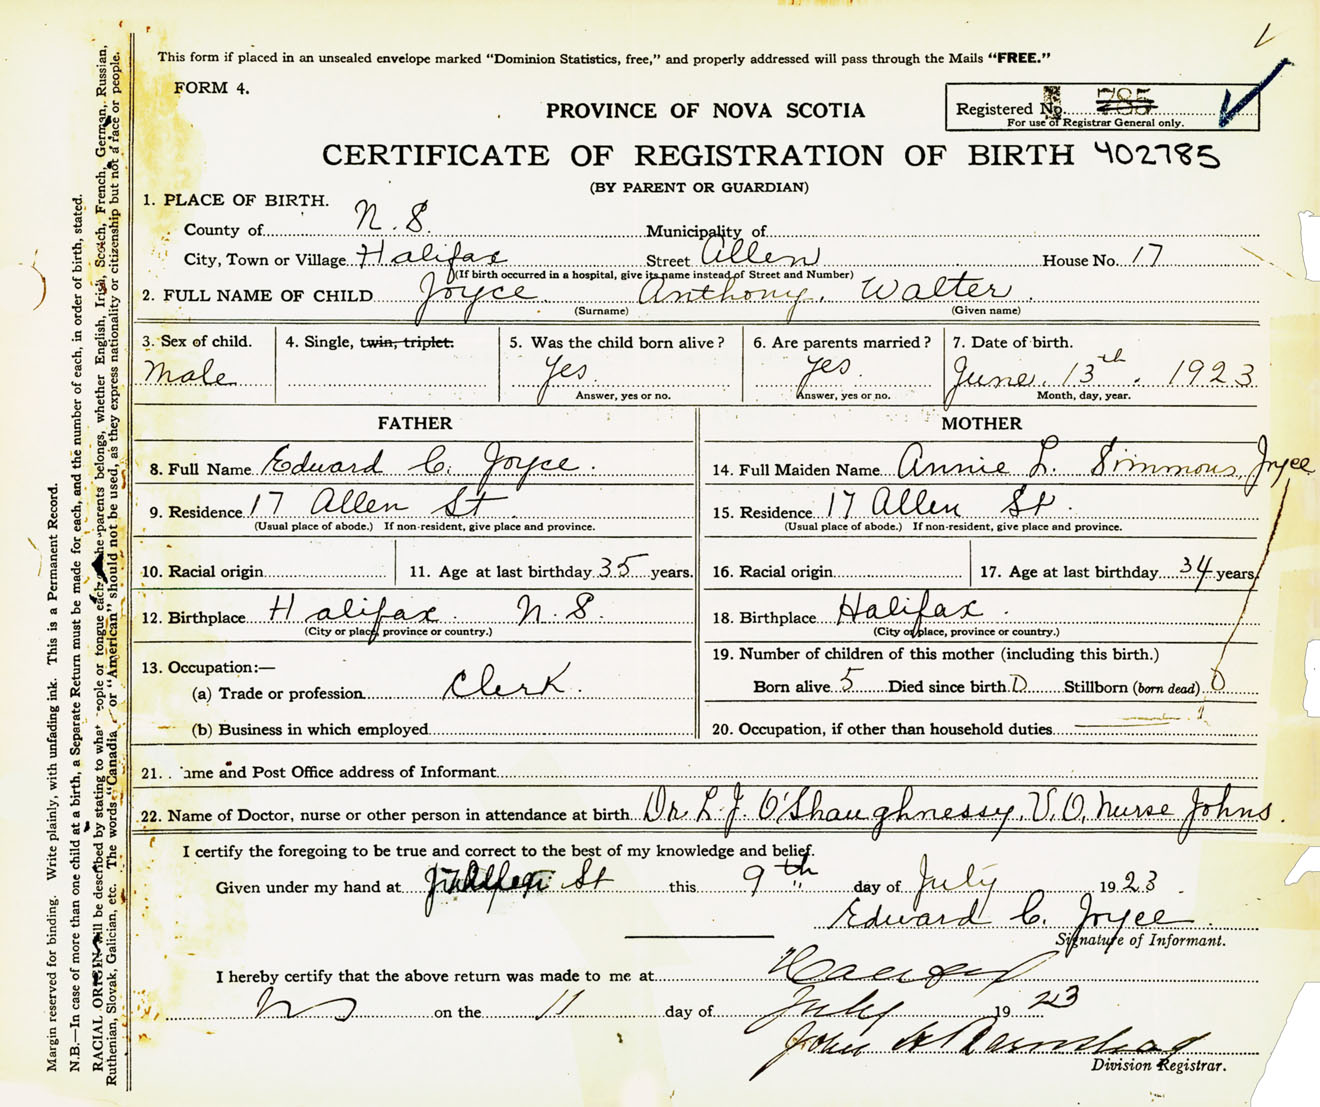 This form if placed in an unsealed envelope marked "Dominion Statistics, free," and properly addressed will pass through the Mails "FREE."
FORM 4.
PROVINCE OF NOVA SCOTIA
Registered No.
For use of Registrar General only.
CERTIFICATE OF REGISTRATION OF BIRTH 402785
(BY PARENT OR GUARDIAN)
1. PLACE OF BIRTH.
County of N. S. Municipality of
City, Town or Village Halifax Street Allen House No. 17
(If birth occurred in a hospital, give its name instead of Street and Number)
2. FULL NAME OF CHILD Joyce Anthony, Walter.
(Surname) (Given name)
3. Sex of child. 4. Single, twin, triplet. 5. Was the child born alive? 6. Are parents married? 7. Date of birth.
Male Yes. Yes. June. 13th. 1923
Answer, yes or no. Answer, yes or no. Month, day, year.
FATHER MOTHER
8. Full Name Edward C. Joyce. 14. Full Maiden Name Annie L. Simmons, Joyce
9. Residence 17 Allen St 15. Residence 17 Allen St.
(Usual place of abode.) If non-resident, give place and province. (Usual place of abode.) If non-resident, give place and province.
10. Racial origin 11. Age at last birthday 35 years. 16. Racial origin 17. Age at last birthday 34 years.
12. Birthplace Halifax. N. S. 18. Birthplace Halifax.
(City or place, province or country.) (City or place, province or country.)
13. Occupation:— 19. Number of children of this mother (including this birth.)
(a) Trade or profession Clerk. Born alive 5 Died since birth 0 Stillborn (born dead) 0
(b) Business in which employed 20. Occupation, if other than household duties
21. ame and Post Office address of Informant
22. Name of Doctor, nurse or other person in attendance at birth Dr. L. J. O'Shaughnessy, V. O, Nurse Johns.
I certify the foregoing to be true and correct to the best of my knowledge and belief.
Given under my hand at St this 9th day of July 1923.
Edward C. Joyce
Signature of Informant.
I hereby certify that the above return was made to me at Halifax
NS on the 11 day of July 1923
John A
Division Registrar.
Margin reserved for binding. Write plainly, with unfading ink. This is a Permanent Record.
N.B.—In case of more than one child at a birth, a Separate Return must be made for each, and the number of each, in order of birth, stated.
RACIAL ORIGIN will be described by stating to what people or tongue each of the parents belongs, whether English, Irish, Scotch, French, German, Russian,
Ruthenian, Slovak, Galician, etc. The words "Canadia or "American" should not be used, as they express nationality or citizenship but not a race or people.